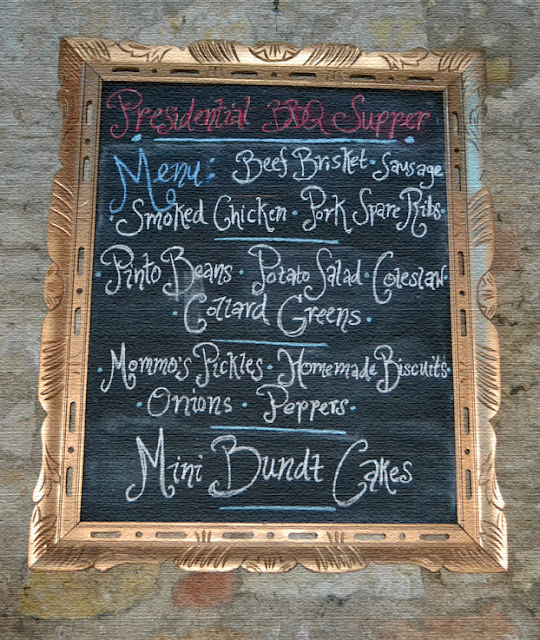 Presidential BBQ Supper
Menu: Beef Brisket · Sausage
· Smoked Chicken · Pork Spare Ribs ·
· Pinto Beans · Potato Salad · Coleslaw ·
· Collard Greens ·
· Mommo's Pickles · Homemade Biscuits ·
· Onions · Peppers ·
Mini Bundt Cakes